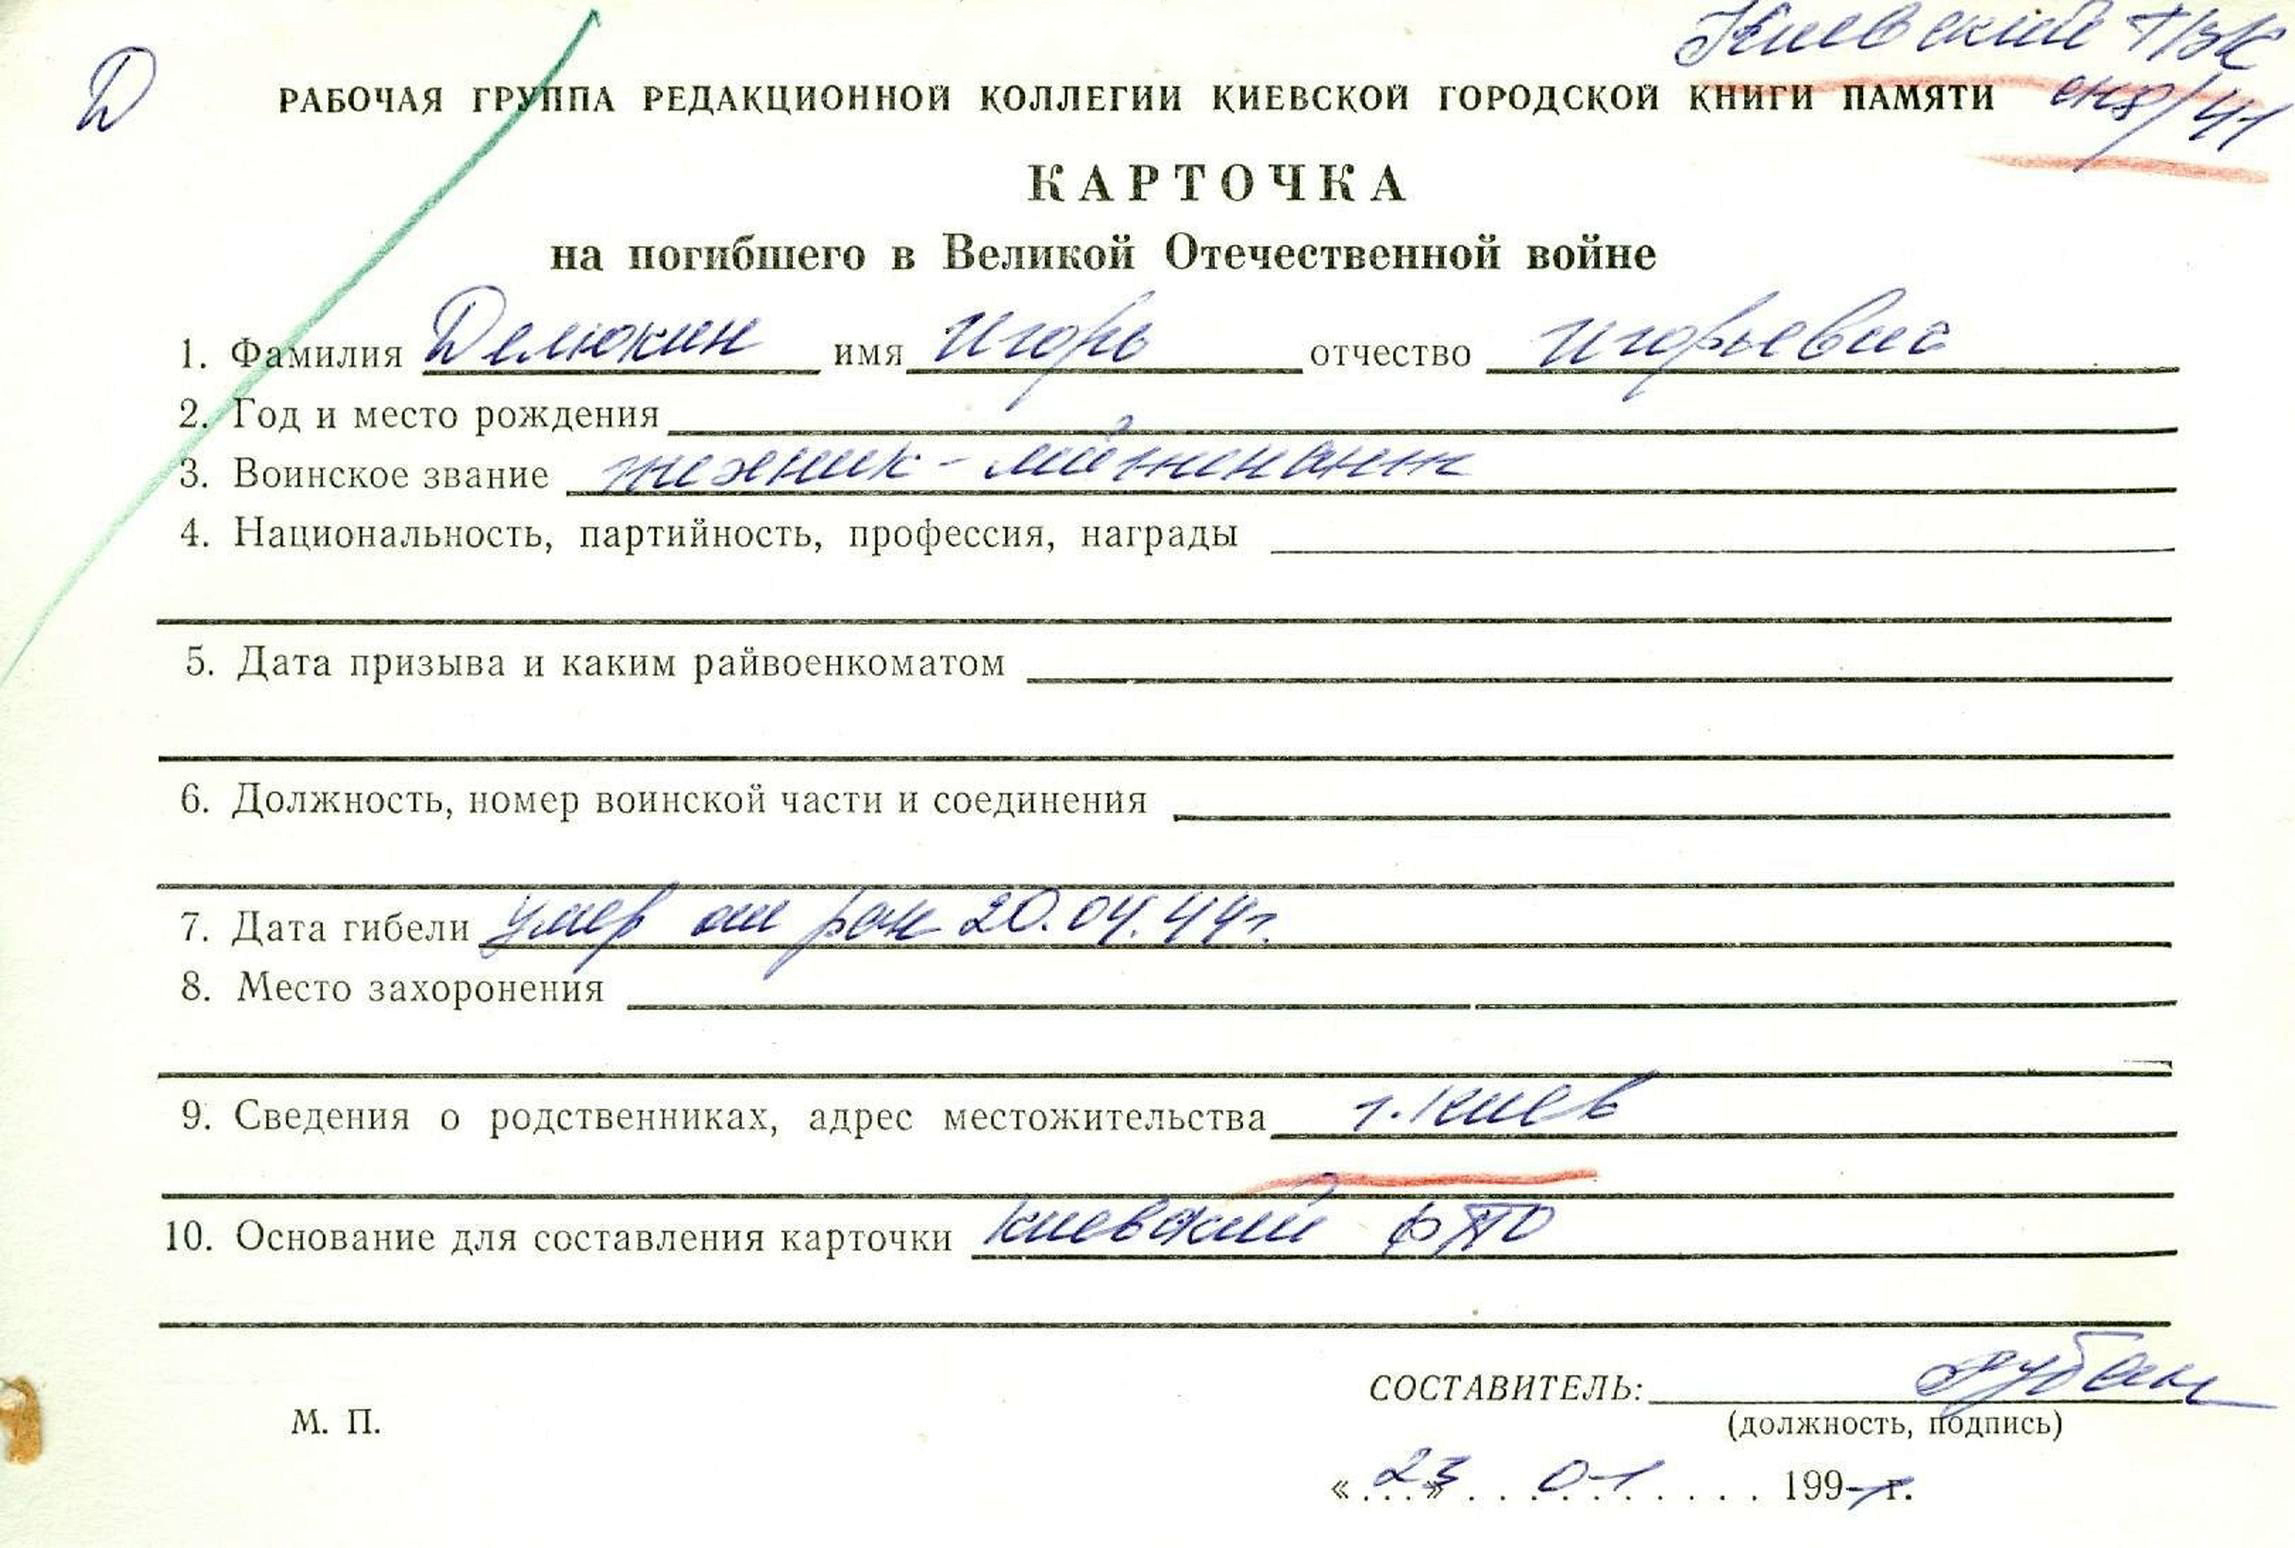 Киевский ГВК
Д
РАБОЧАЯ ГРУППА РЕДАКЦИОННОЙ КОЛЛЕГИИ КИЕВСКОЙ ГОРОДСКОЙ КНИГИ ПАМЯТИ
КАРТОЧКА
на погибшего в Великой Отечественной войне
1. Фамилия Делюкин имя Игорь отчество Игорьевич
2. Год и место рождения
3. Воинское звание техник-лейтенант
4. Национальность, партийность, профессия, награды
5. Дата призыва и каким райвоенкоматом
6. Должность, номер воинской части и соединения
7. Дата гибели умер от ран 20.04.44г.
8. Место захоронения
9. Сведения о родственниках, адрес местожительства г. Киев
10. Основание для составления карточки Киевский
СОСТАВИТЕЛЬ: Рубан
М. П.
(должность, подпись)
« 23 » 01 199 г.